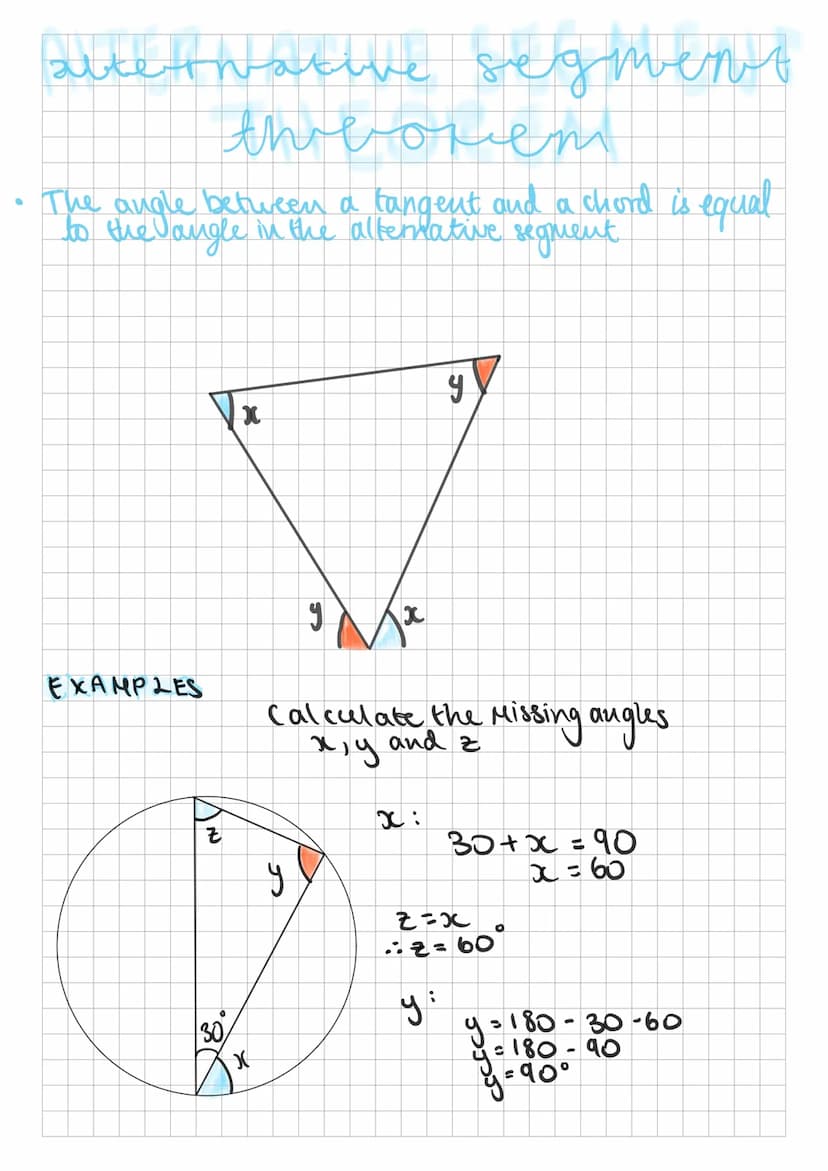 alternative segment
theorem
• The angle between a tangent and a chord is equal
to the angle in the alternative segment
x
y
y
x
EXAMPLES
Calculate the missing angles
x, y and z
z
y
30°
x
x:
30 + x = 90
x = 60
z = x
∴ z = 60°
y:
y = 180 - 30 - 60
y = 180 - 90
y = 90°